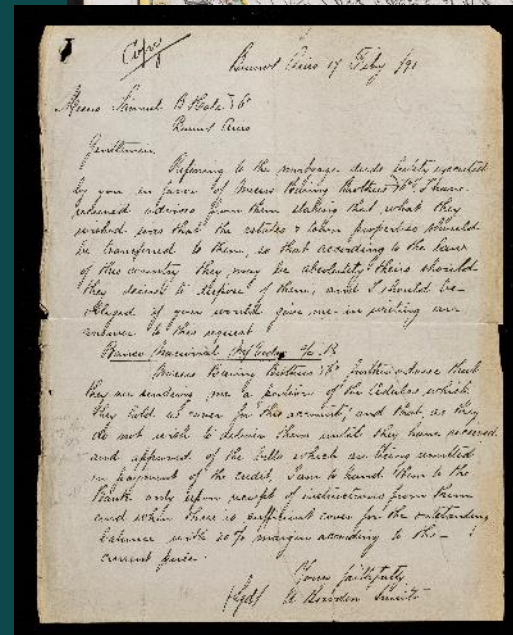 Copy
Buenos Aires 17 Feby /91
Messrs Samuel B Hale & Co
Buenos Aires
Gentlemen
Referring to the mortgage deeds lately executed
by you in favor of Messrs Baring Brothers & Co, I have
received advices from them stating that what they
wished was that the estates & town properties should
be transferred to them, so that according to the laws
of this country they may be absolutely theirs should
they desire to dispose of them, and I should be
obliged if you would give me in writing an
answer to this request
Banco Nacional a/c B
Messrs Baring Brothers & Co further advise that
they are sending me a portion of the Cedulas which
they hold as cover for this account, and that, as they
do not wish to deliver them until they have received
and approved of the bills which are being remitted
in payment of the credit, I am to hand them to the
Bank only upon receipt of instructions from them
and when there is sufficient cover for the outstanding
balance with 20% margin according to the
current price.
Yours faithfully
(Sgd) Smith